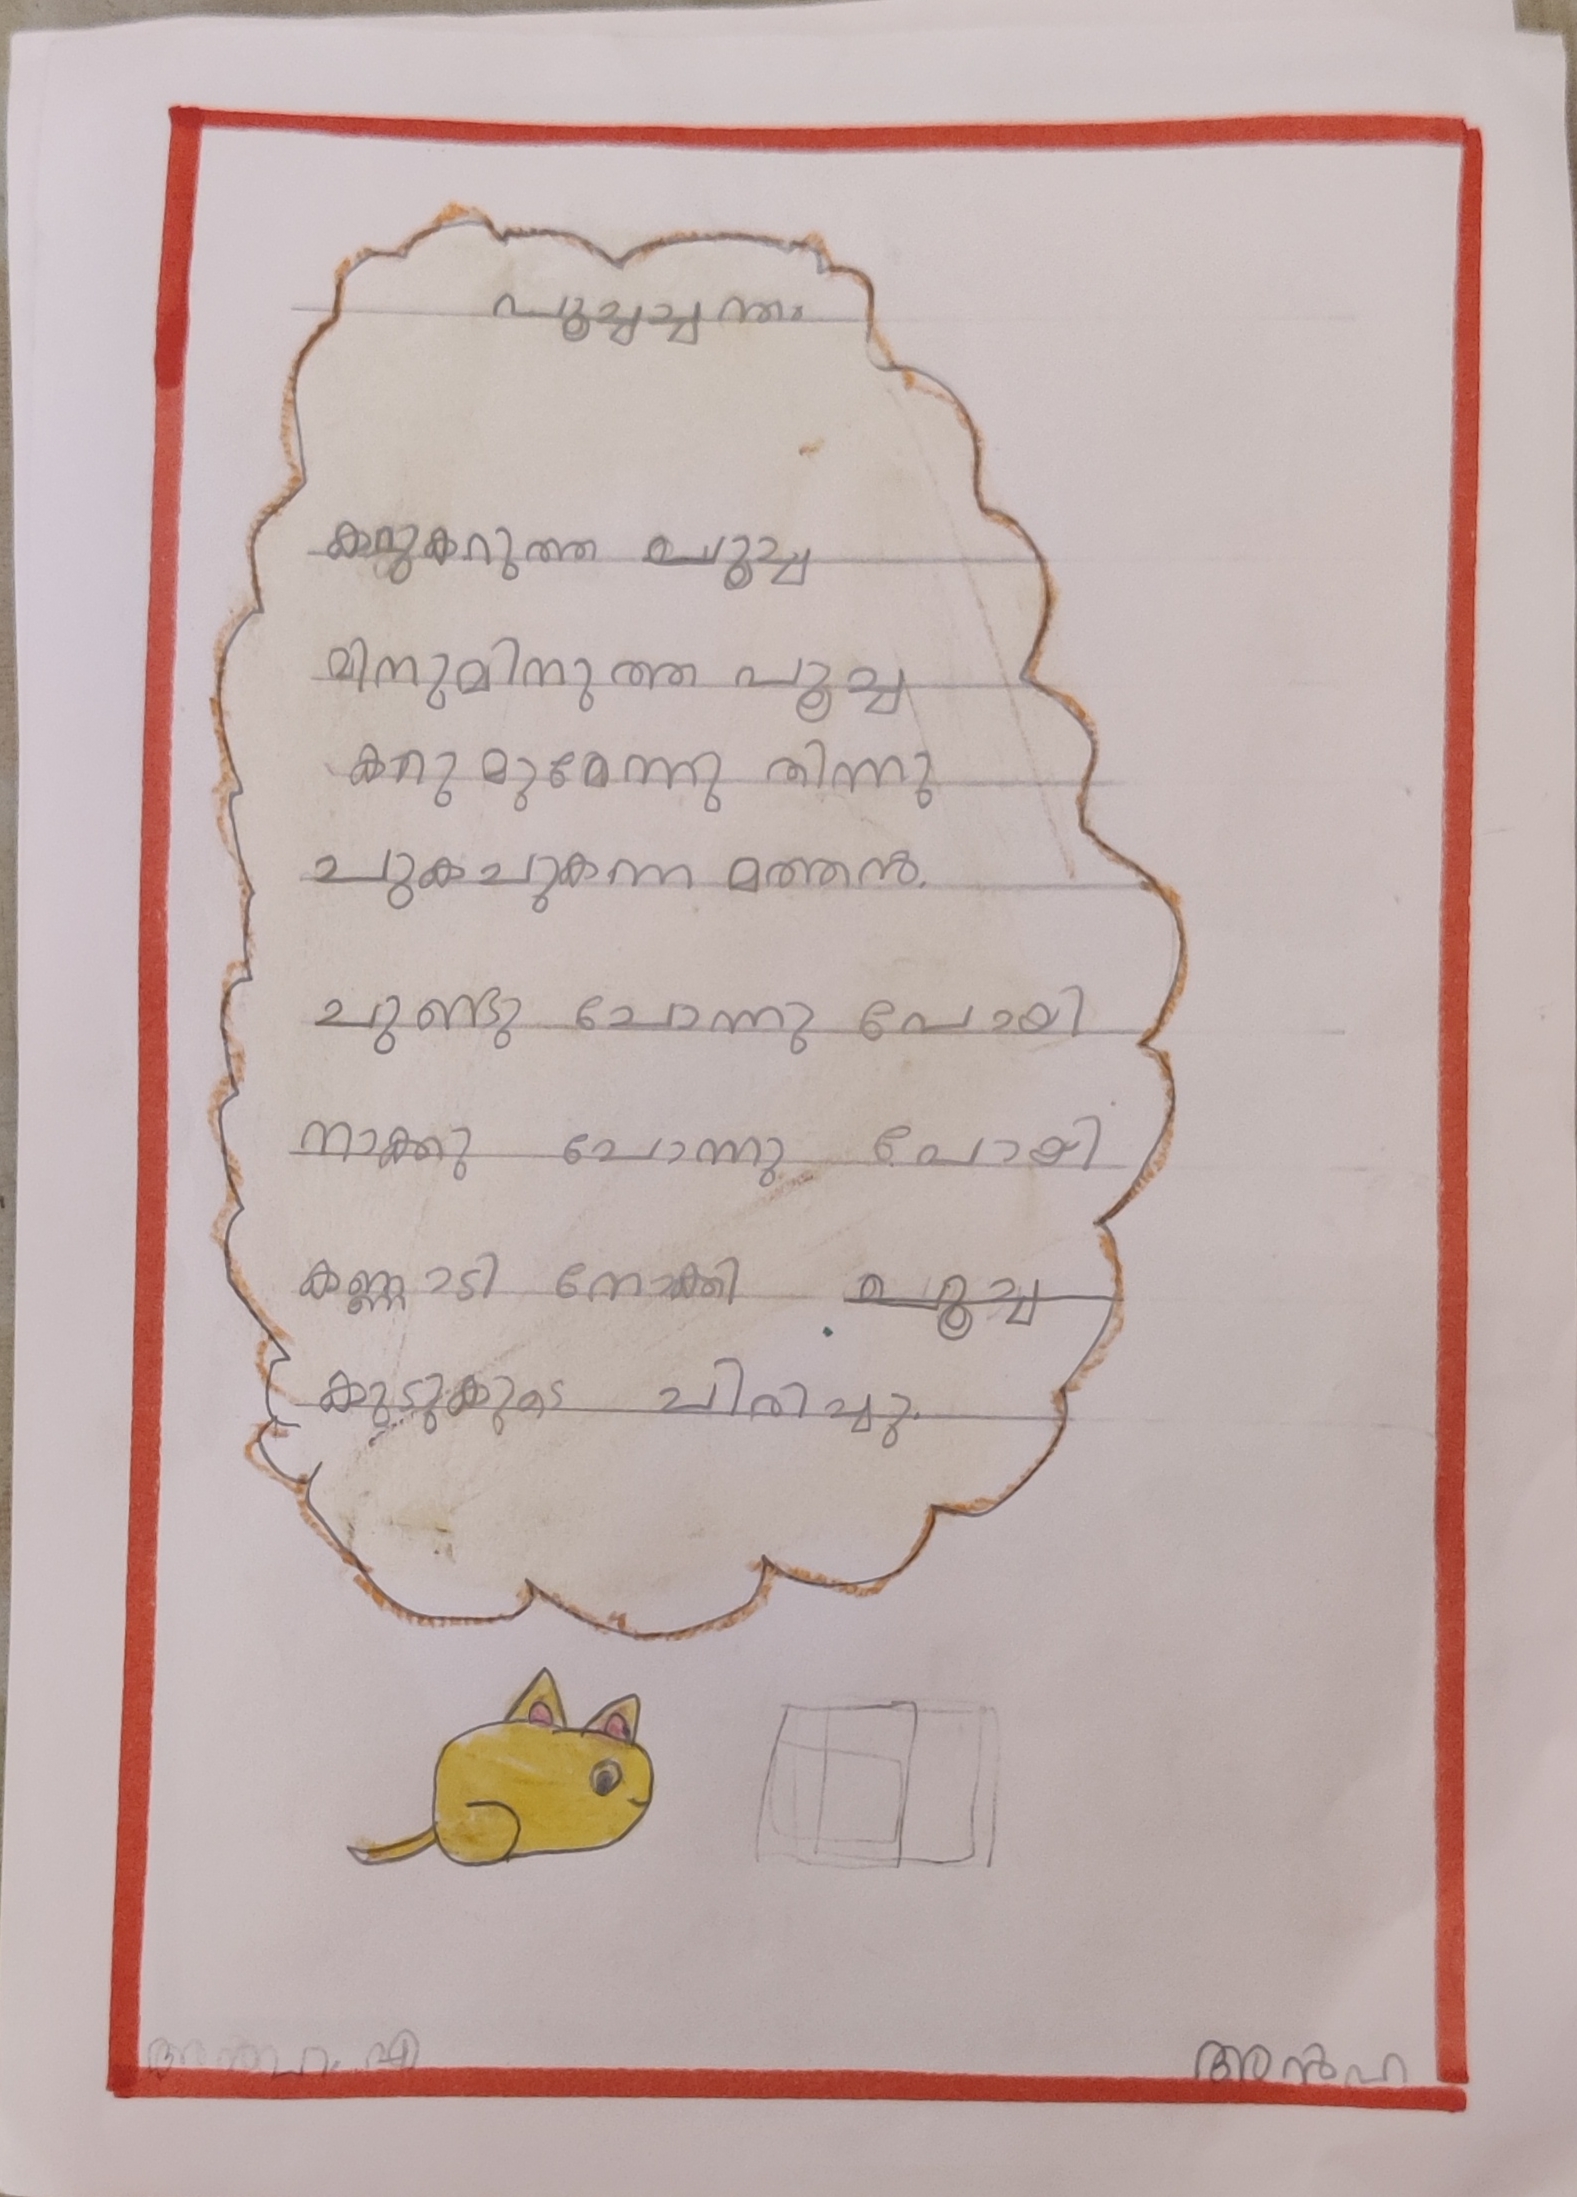 പൂച്ചച്ചന്തം
കറുകറുത്ത പൂച്ച
മിനുമിനുത്ത പൂച്ച
കറു മുമേന്നു തിന്നു
ചുകചുകന്ന മത്തൻ.
ചുണ്ടു ചോന്നു പോയി
നാക്കു ചോന്നു പോയി
കണ്ണാടി നോക്കി പൂച്ച
കുടുകുടെ ചിരിച്ചു.
അൻഹ